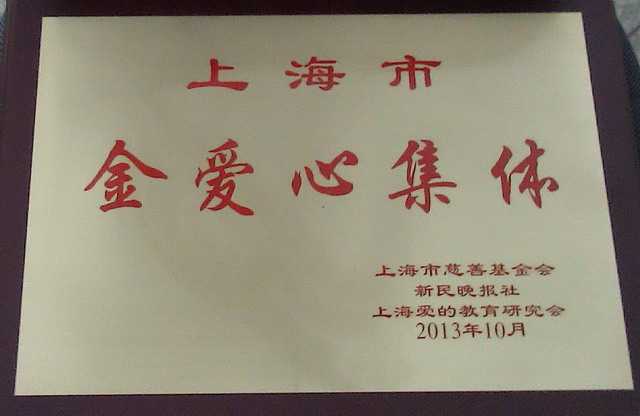 上海市
金爱心集体
上海市慈善基金会
新民晚报社
上海爱的教育研究会
2013年10月